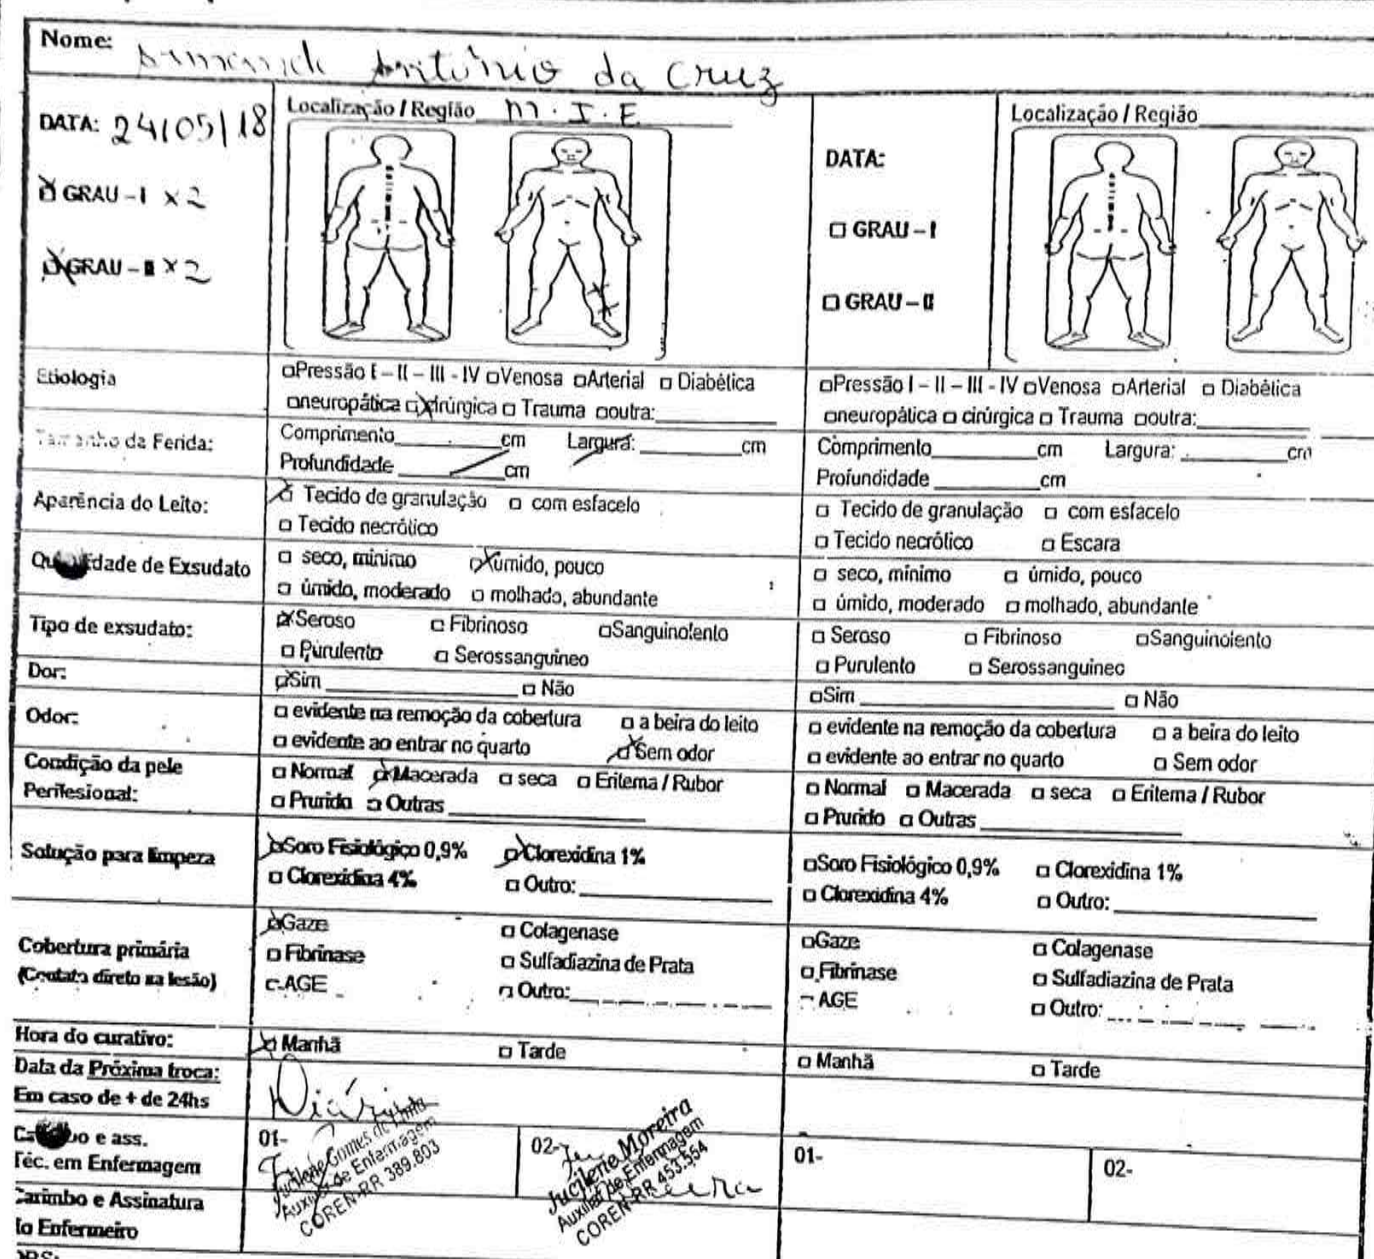 Nome: António da Cruz
DATA: 24/05/18
Localização / Região M.I.E
☒ GRAU – I x 2
☒ GRAU – II x 2
DATA:
☐ GRAU – I
☐ GRAU – II
Localização / Região
Etiologia
☐Pressão I – II – III - IV ☐Venosa ☐Arterial ☐ Diabética
☐neuropática ☒cirúrgica ☐ Trauma ☐outra:
☐Pressão I – II – III - IV ☐Venosa ☐Arterial ☐ Diabética
☐neuropática ☐ cirúrgica ☐ Trauma ☐outra:
Tamanho da Ferida:
Comprimento cm Largura: cm
Profundidade cm
Comprimento cm Largura: cm
Profundidade cm
Aparência do Leito:
☒ Tecido de granulação ☐ com esfacelo
☐ Tecido necrótico
☐ Tecido de granulação ☐ com esfacelo
☐ Tecido necrótico ☐ Escara
Quantidade de Exsudato
☐ seco, mínimo ☒úmido, pouco
☐ úmido, moderado ☐ molhado, abundante
☐ seco, mínimo ☐ úmido, pouco
☐ úmido, moderado ☐ molhado, abundante
Tipo de exsudato:
☒Seroso ☐ Fibrinoso ☐Sanguinolento
☐ Purulento ☐ Serossanguineo
☐ Seroso ☐ Fibrinoso ☐Sanguinolento
☐ Purulento ☐ Serossanguineo
Dor:
☒Sim ☐ Não
☐Sim ☐ Não
Odor:
☐ evidente na remoção da cobertura ☐ a beira do leito
☐ evidente ao entrar no quarto ☒Sem odor
☐ evidente na remoção da cobertura ☐ a beira do leito
☐ evidente ao entrar no quarto ☐ Sem odor
Condição da pele
Perilesional:
☐ Normal ☒Macerada ☐ seca ☐ Eritema / Rubor
☐ Prurido ☐ Outras
☐ Normal ☐ Macerada ☐ seca ☐ Eritema / Rubor
☐ Prurido ☐ Outras
Solução para limpeza
☒Soro Fisiológico 0,9% ☒Clorexidina 1%
☐ Clorexidina 4% ☐ Outro:
☐Soro Fisiológico 0,9% ☐ Clorexidina 1%
☐ Clorexidina 4% ☐ Outro:
Cobertura primária
(Contato direto na lesão)
☒Gaze ☐ Colagenase
☐ Fibrinase ☐ Sulfadiazina de Prata
☐ AGE ☐ Outro:
☐Gaze ☐ Colagenase
☐ Fibrinase ☐ Sulfadiazina de Prata
☐ AGE ☐ Outro:
Hora do curativo:
☒ Manhã ☐ Tarde
☐ Manhã ☐ Tarde
Data da Próxima troca:
Em caso de + de 24hs
Diário
Carimbo e ass.
Téc. em Enfermagem
01-
Gomes de
Auxiliar de Enfermagem
COREN-RR 389.803
02-
Jucilene Moreira
Auxiliar de Enfermagem
COREN-RR 453.554
01-
02-
Carimbo e Assinatura
do Enfermeiro
OBS: